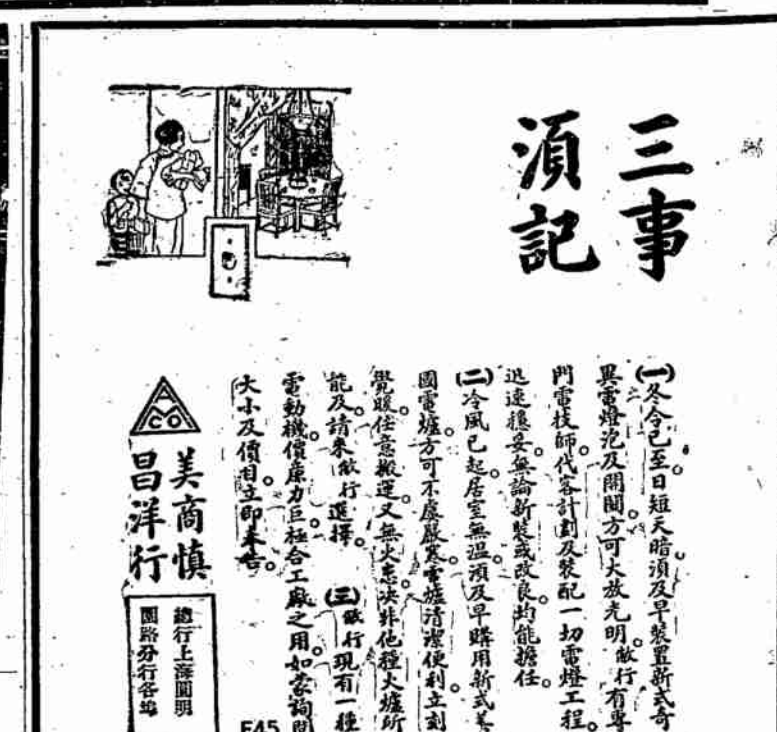 三事
須記
(一)冬令已至。日短天暗。須及早裝置新式奇
異電燈泡及開關。方可大放光明。敝行有專
門電技師。代客計劃及裝配一切電燈工程。
迅速穩妥。無論新裝或改良。均能擔任。
(二)冷風已起。居室無溫。須及早購用新式美
國電爐。方可不虞嚴寒。電爐清潔便利。立刻
覺暖。任意搬運。又無火患。决非他種火爐所
能及。請來敝行選擇。 (三)敝行現有一種
電動機。價廉力巨。極合工廠之用。如蒙詢問
大小及價目。立即奉告。
AMCO
美商慎
昌洋行
總行上海圓明
園路分行各埠
E45